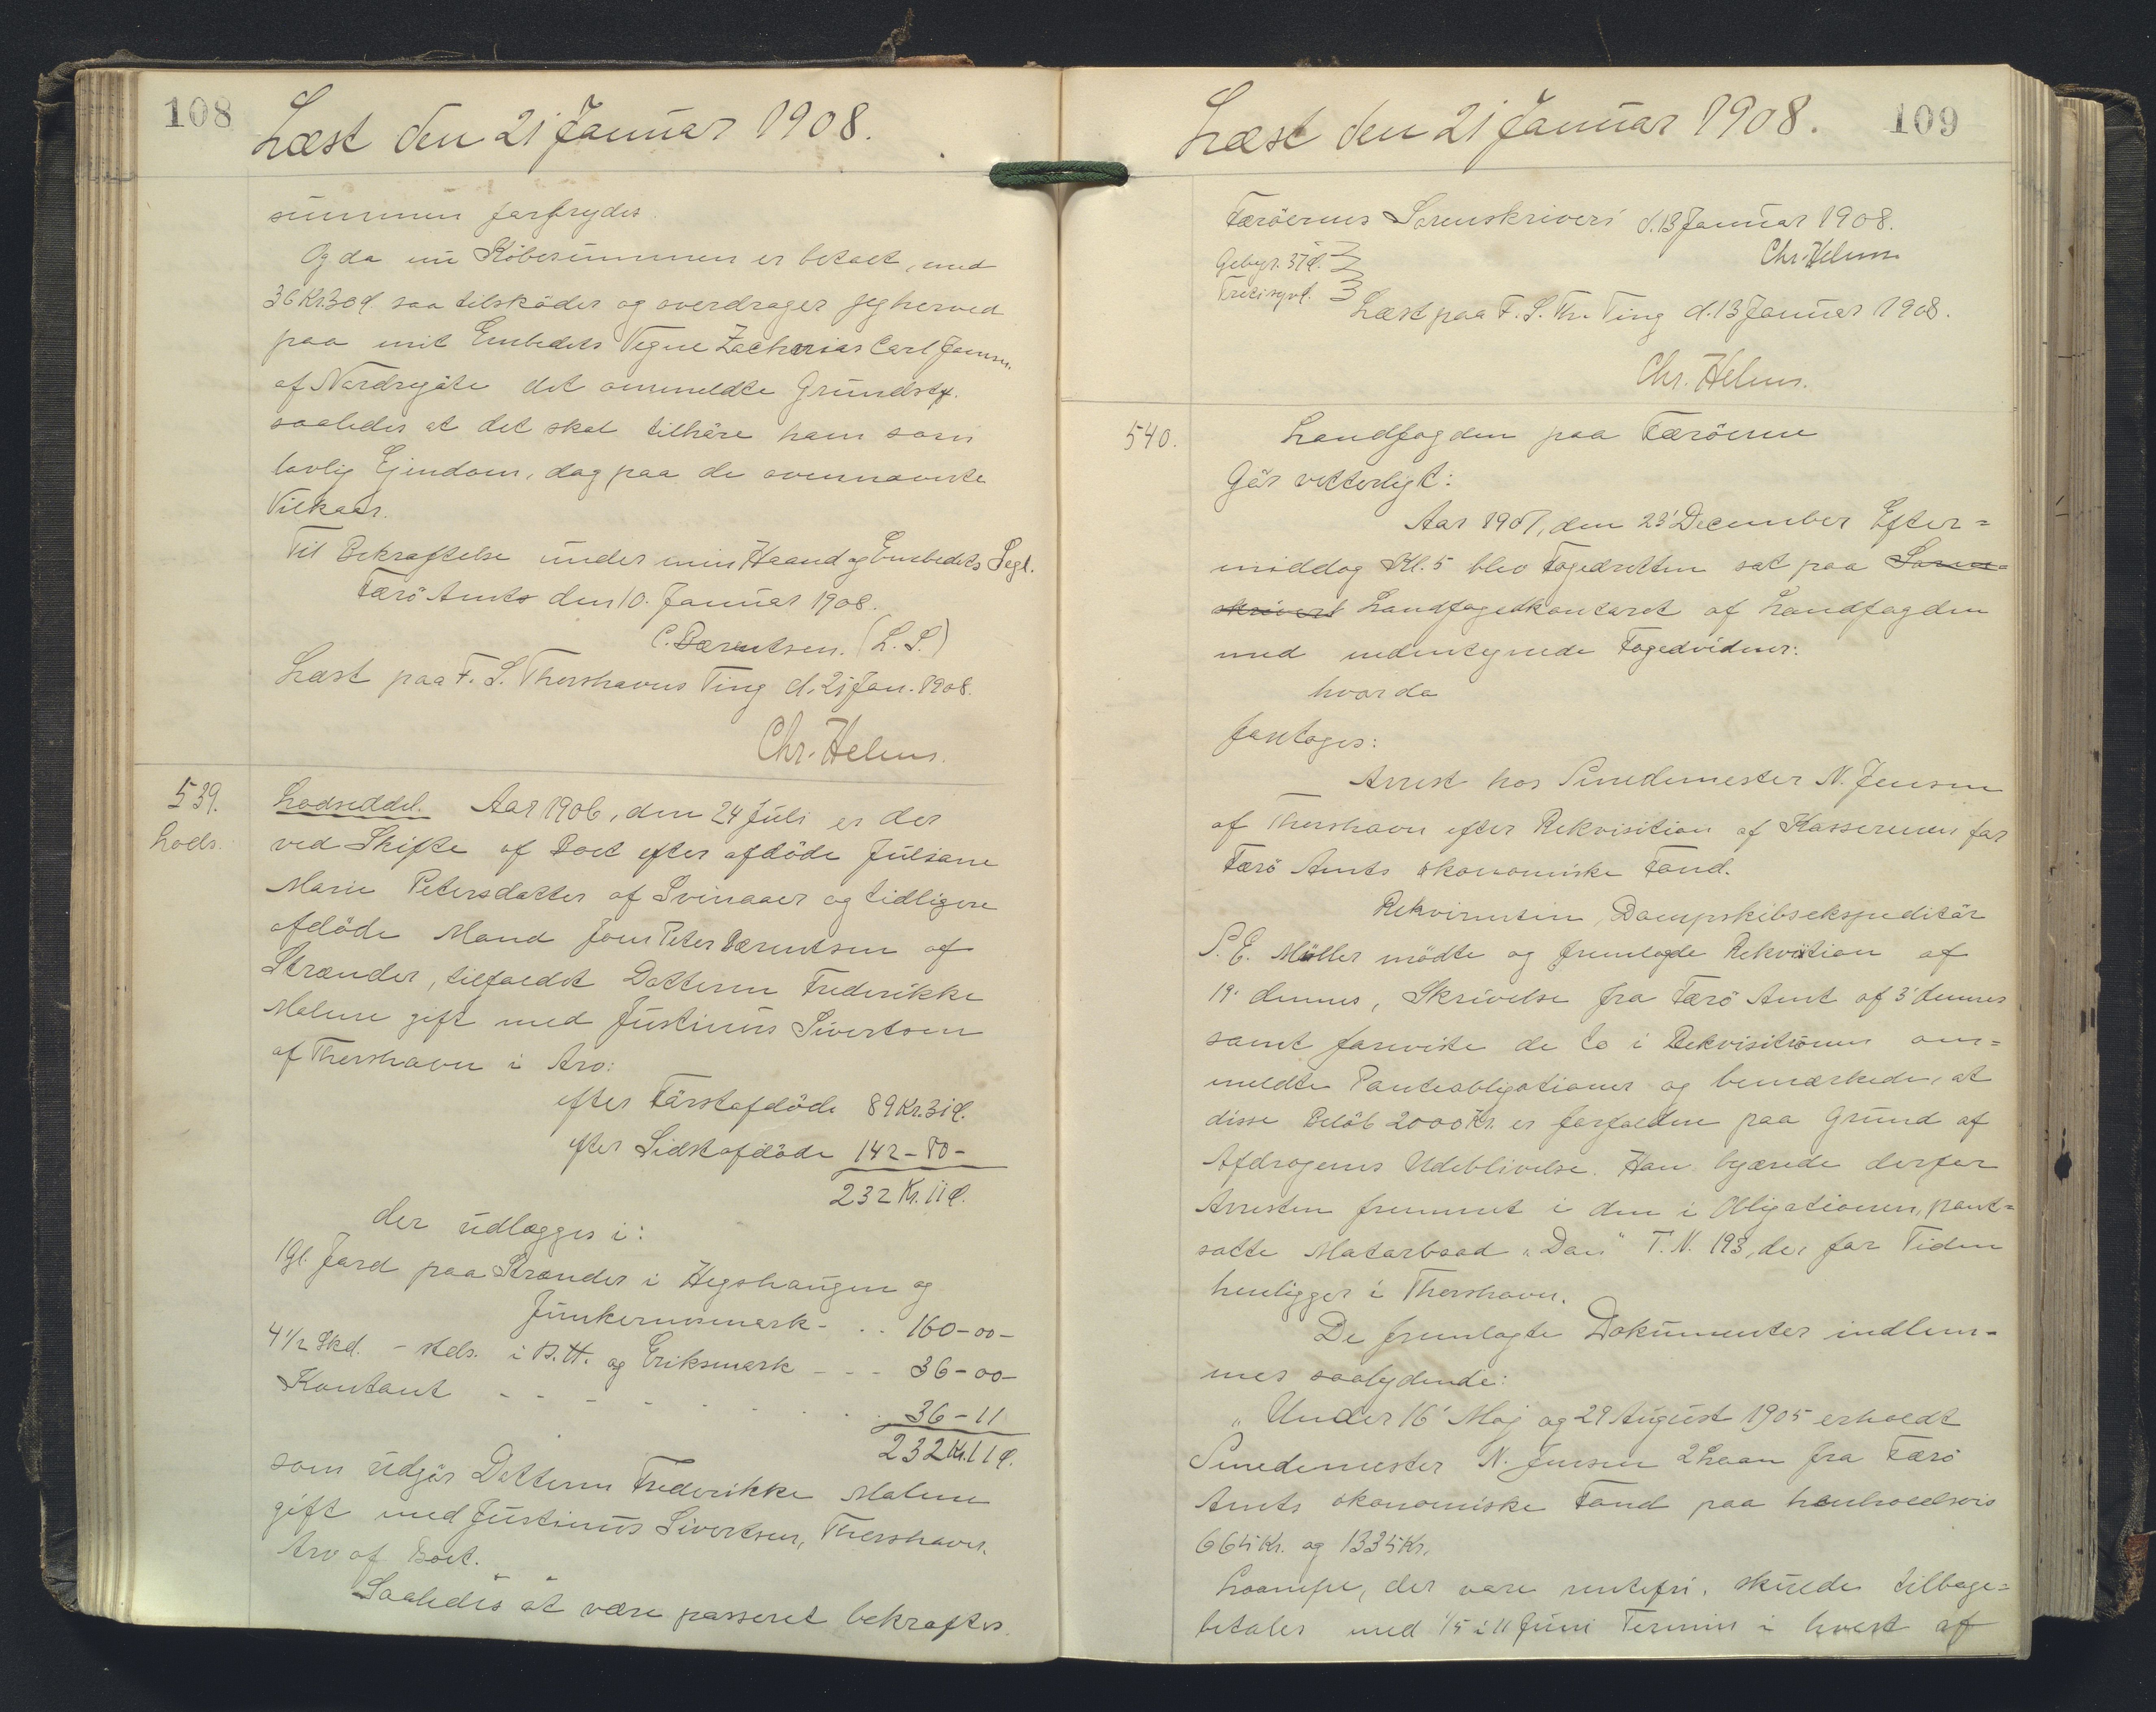 108
Læst den 21' Januar 1908.
summen forfrydes.
Og da nu Köbesummen er betalt, med
36 Kr. 30 Ø. saa tilsköder og overdrager jeg herved
paa mit Embedets Vegne Zacharias Carl Jensen
af Nordregöte det ommeldte Grundstk.
saaledes at det skal tilhöre ham som
lovlig Ejendom, dog paa de ovennævnte
Vilkaar.
Til Bekræftelse under min Haand og Embedets Segl.
Færö Amt den 10. Januar 1908.
C. Bærentsen. (L. S.)
Læst paa F. S. Thorshavns Ting d. 21' Jan. 1908.
Chr. Helms.
539.
Lods.
Lodseddel. Aar 1906, den 24 Juli er der
ved Skifte af Boet efter afdöde Julsane
Marie Petersdatter af Svinaaer og tidligere
afdöde Mand Joen Peter Bærentsen af
Strænder, tilfaldet Datteren Frederikke
Malene gift med Justinus Sivertsen
af Thorshavn i Arv:
efter Förstafdöde 89 Kr. 31 Ø.
efter Sidstafdöde 142 - 80 -
232 Kr. 11 Ø.
der udlægges i:
1 Gl. Jord paa Strænder i Hegshaugen og
Junkerensmark - . . 160 - 00 -
4 1/2 Skd. - stds. i B. H. og Eriksmark - - - 36 - 00 -
Kontant - - - - - . . . . 36 - 11
232 Kr. 11 Ø.
som udgör Datteren Frederikke Malene
gift med Justinus Sivertsen, Thorshavn.
Arv af Boet.
Saaledes at være passeret bekræftes.
Læst den 21' Januar 1908.
109
Færöernes Sorenskriveri d. 13 Januar 1908.
Gebyr. 37 Ø.
Chr. Helms
Læst paa F. S. Th. Ting d. 13 Januar 1908.
Chr. Helms.
540.
Landfogden paa Færöerne
Gör vitterligt:
Aar 1907, den 23' December Efter=
middag Kl. 5 blev Fogedretten sat paa Soren=
skriveri Landfogedkontoret af Landfogden
med undertegnede Fogedvidner:
hvorda
foretoges:
Arrest hos Smedemester N. Jensen
af Thorshavn efter Rekvisition af Kassereren for
Færö Amts ökonomiske Fond.
Rekvirenten, Dampskibsekspeditör
P. E. Müller mödte og fremlagde Rekvisition af
19' dennes, Skrivelse fra Færö Amt af 3' dennes
samt foreviste de to i Rekvisitionen om=
meldte Panteobligationer og bemærkede, at
disse Belöb 2000 Kr. er forfaldne paa Grund af
Afdragenes Udeblivelse. Han begærede derfor
Arresten fremmet i den i Obligationen, pant=
satte Motorbaad "Dan" T. N. 193, der for Tiden
henligger i Thorshavn.
De fremlagte Dokumenter indlem-
mes saalydende:
"Under 16' Maj og 29 August 1905 erholdt
Smedemester N. Jensen 2 Laan fra Færö
Amts ökonomiske Fond paa henholdsvis
665 Kr. og 1335 Kr.
Laanene, der vare rentefri, skulde tilbage=
betales med 1/5 i 11 Juni Termin i hvert af